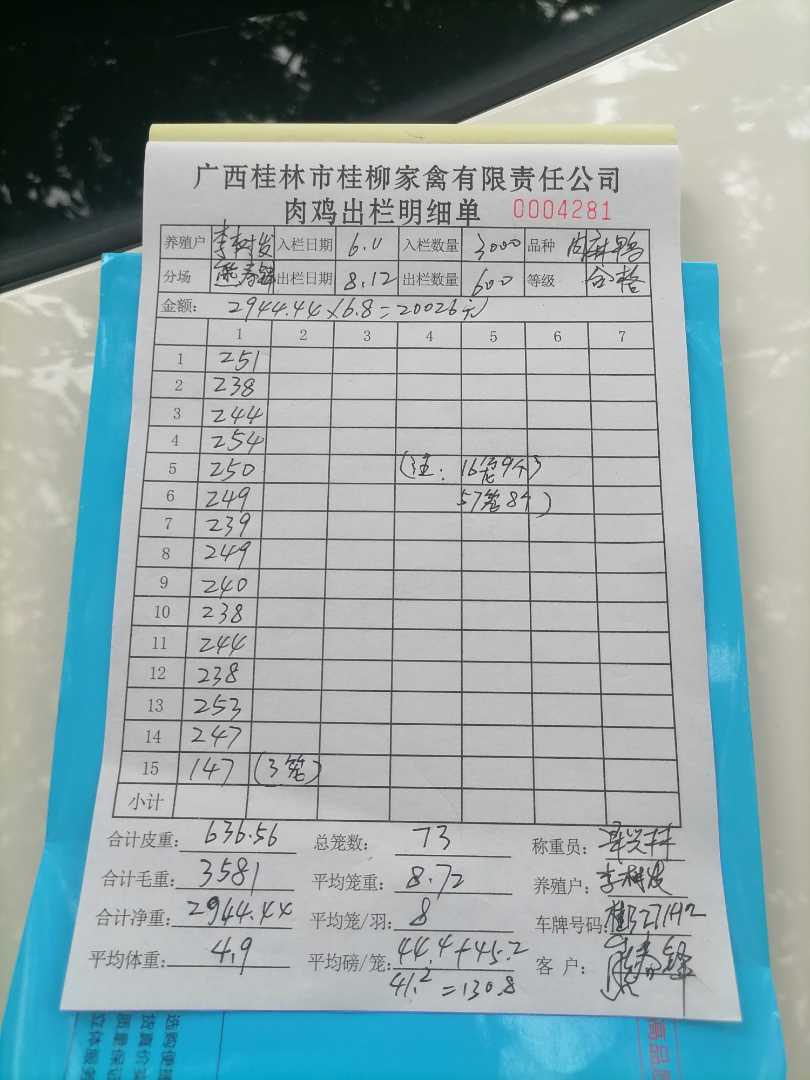 广西桂林市桂柳家禽有限责任公司
肉鸡出栏明细单 0004281
养殖户 李树发 入栏日期 6.11 入栏数量 3000 品种 肉麻鸭
分场 出栏日期 8.12 出栏数量 600 等级 合格
金额: 2944.44×6.8=20026元
1 2 3 4 5 6 7
1 251
2 238
3 244
4 254
5 250 (注: 16笼9个)
6 249 57笼8个)
7 239
8 249
9 240
10 238
11 244
12 238
13 253
14 247
15 147 (3笼)
小计
合计皮重: 636.56 总笼数: 73 称重员:
合计毛重: 3581 平均笼重: 8.72 养殖户: 李树发
合计净重: 2944.44 平均笼/羽: 8 车牌号码:
平均体重: 4.9 平均磅/笼: 44.4+45.2 客户:
41.2=130.8
选购便
货真价
质量保
立体服
高品